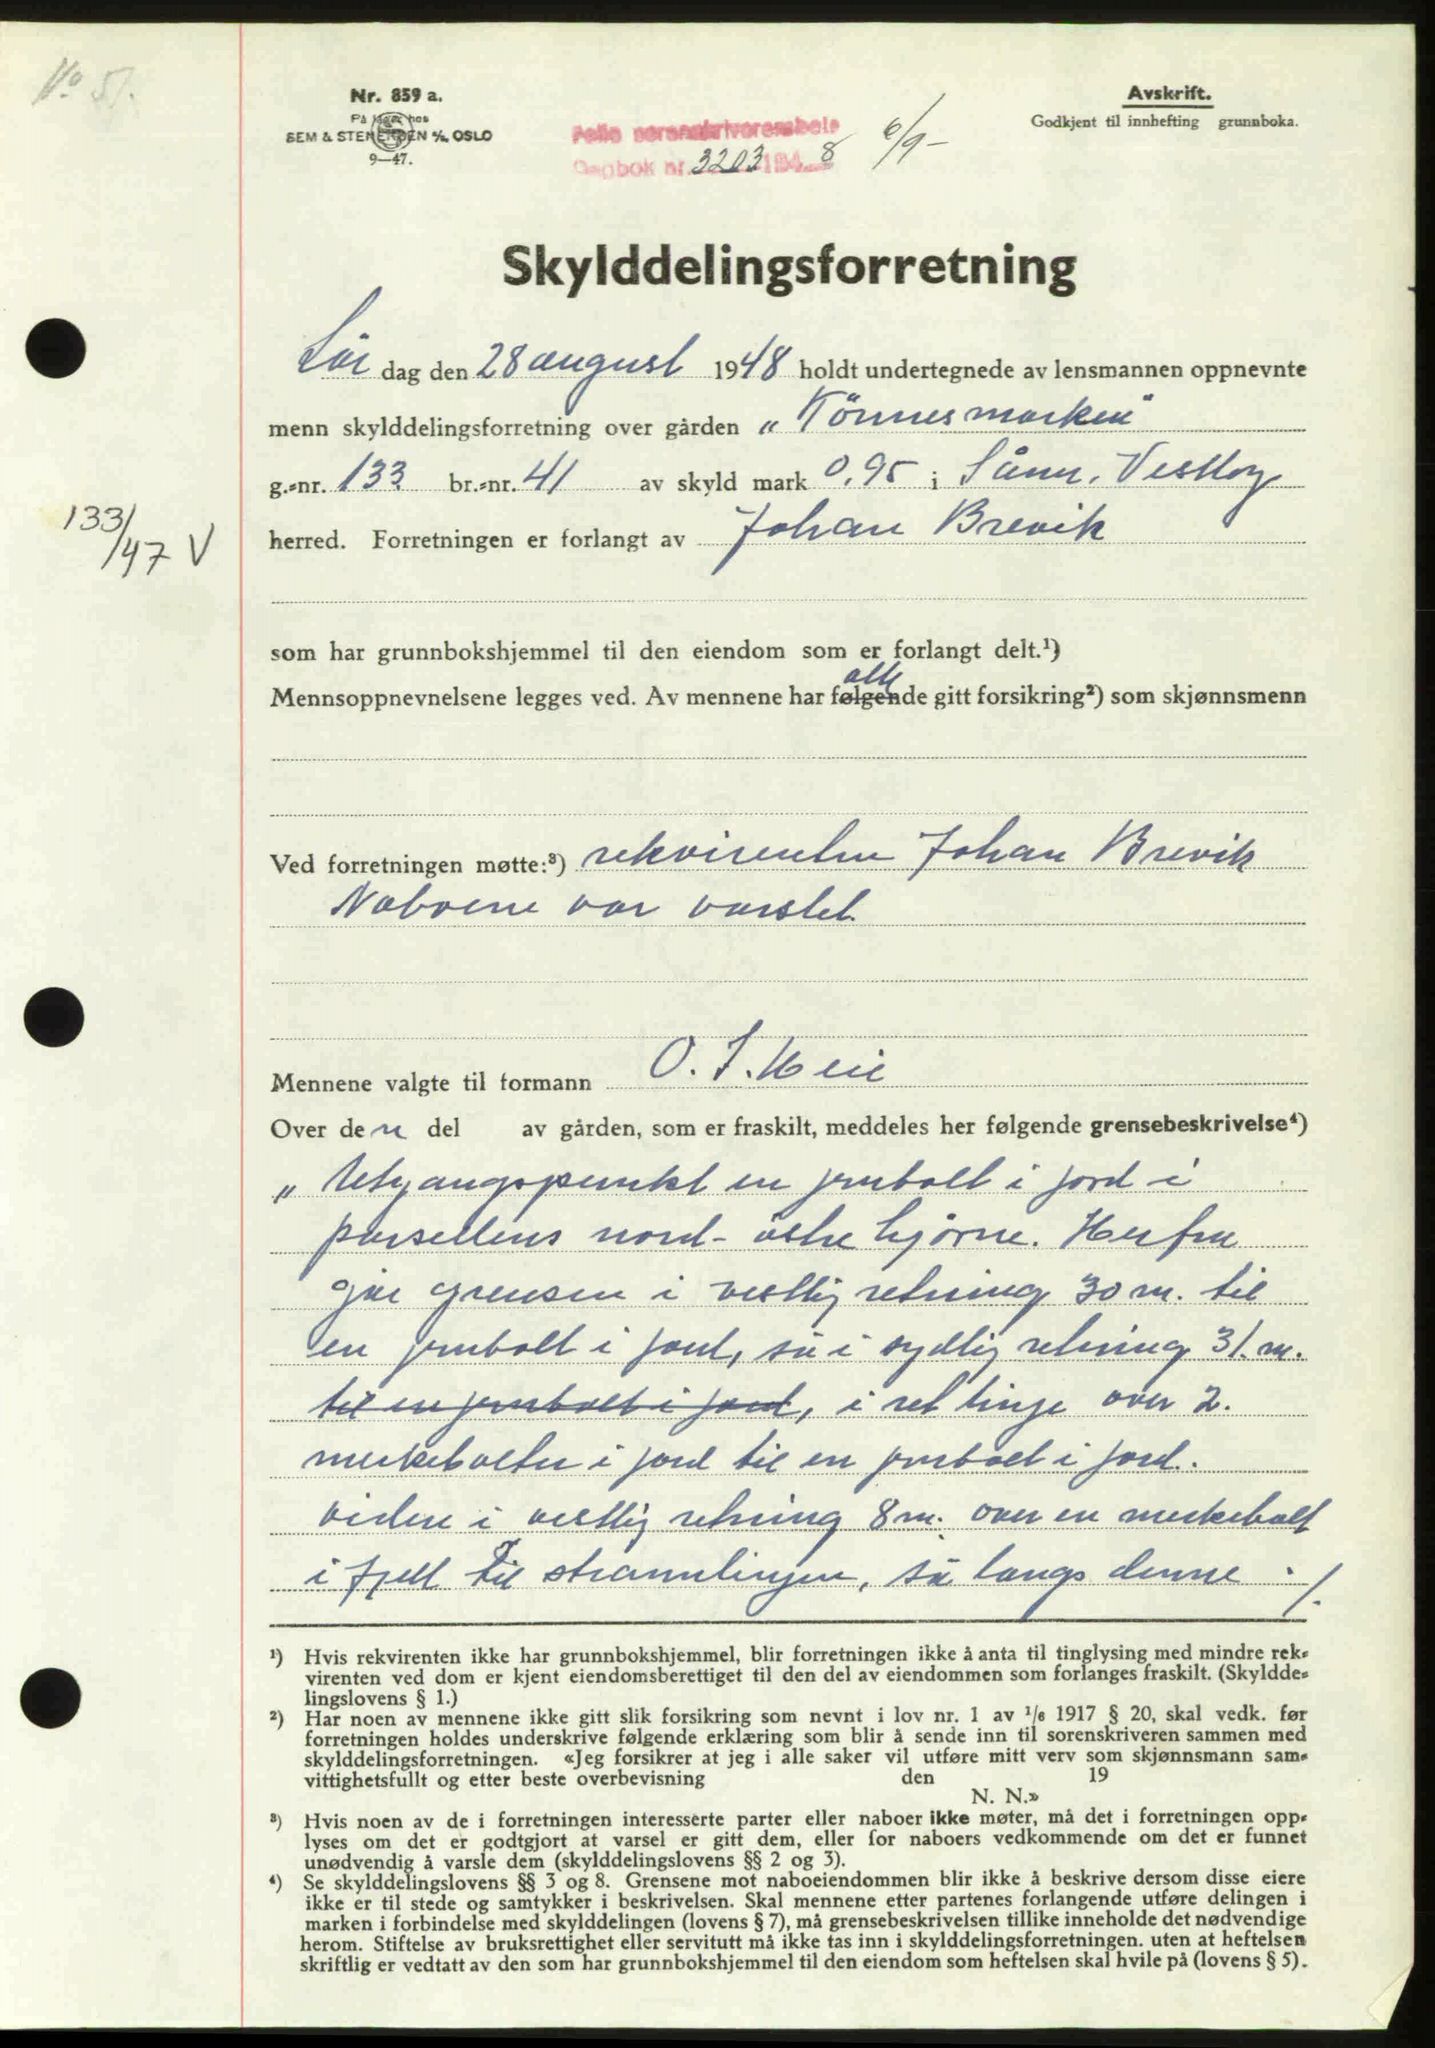 No 51.
Nr. 859 a.
På lager hos
SEM & STENERSEN A/S, OSLO
9-47.
Follo sorenskriverembete
Dagbok nr. 3203 1948
6/9-
Avskrift.
Godkjent til innhefting grunnboka.
Skylddelingsforretning
Lör dag den 28 august 1948 holdt undertegnede av lensmannen oppnevnte
menn skylddelingsforretning over gården "Tönnesmarken"
g.=nr. 133 br.=nr. 41 av skyld mark 0,95 i Såner, Vestby
133/47 V
herred. Forretningen er forlangt av Johan Brevik
som har grunnbokshjemmel til den eiendom som er forlangt delt.¹)
alle
Mennsoppnevnelsene legges ved. Av mennene har følgende gitt forsikring²) som skjønnsmenn
Ved forretningen møtte:³) rekvirenten Johan Brevik
Naboene var varslet.
Mennene valgte til formann O. J. Heie
Over den del av gården, som er fraskilt, meddeles her følgende grensebeskrivelse⁴)
" Utgangspunkt en jrnbolt i jord i
parsellens nord-östre hjörne. Herfra
går grensen i vestlig retning 30 m. til
en jrnbolt i jord, så i sydlig retning 31. m.
til en jrnbolt i jord, i ret linje over 2.
merkebolter i jord til en jrnbolt i jord.
videre i vestlig retning 8 m. over en merkebolt
i fjell til strannlinjen, så langs denne ./.
¹) Hvis rekvirenten ikke har grunnbokshjemmel, blir forretningen ikke å anta til tinglysing med mindre rek=
virenten ved dom er kjent eiendomsberettiget til den del av eiendommen som forlanges fraskilt. (Skyldde=
lingslovens § 1.)
²) Har noen av mennene ikke gitt slik forsikring som nevnt i lov nr. 1 av 1/6 1917 § 20, skal vedk. før
forretningen holdes underskrive følgende erklæring som blir å sende inn til sorenskriveren sammen med
skylddelingsforretningen. «Jeg forsikrer at jeg i alle saker vil utføre mitt verv som skjønnsmann sam=
vittighetsfullt og etter beste overbevisning den 19
N. N.»
³) Hvis noen av de i forretningen interesserte parter eller naboer ikke møter, må det i forretningen opp=
lyses om det er godtgjort at varsel er gitt dem, eller for naboers vedkommende om det er funnet
unødvendig å varsle dem (skylddelingslovens §§ 2 og 3).
⁴) Se skylddelingslovens §§ 3 og 8. Grensene mot naboeiendommen blir ikke å beskrive dersom disse eiere
ikke er til stede og samtykker i beskrivelsen. Skal mennene etter partenes forlangende utføre delingen i
marken i forbindelse med skylddelingen (lovens § 7), må grensebeskrivelsen tillike inneholde det nødvendige
herom. Stiftelse av bruksrettighet eller servitutt må ikke tas inn i skylddelingsforretningen. uten at heftelsen
skriftlig er vedtatt av den som har grunnbokshjemmel til den eiendom som heftelsen skal hvile på (lovens § 5).